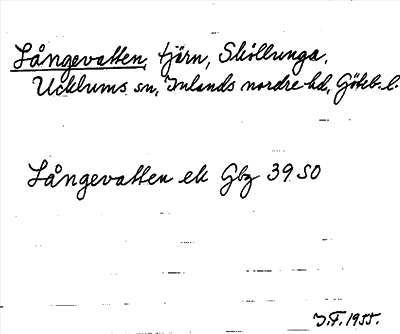 Långevatten, tjärn, Sköllunga,
Ucklums sn, Inlands nordre hd, Göteb. l.
Långevatten ek Gbg 39 SO
I.F. 1955.